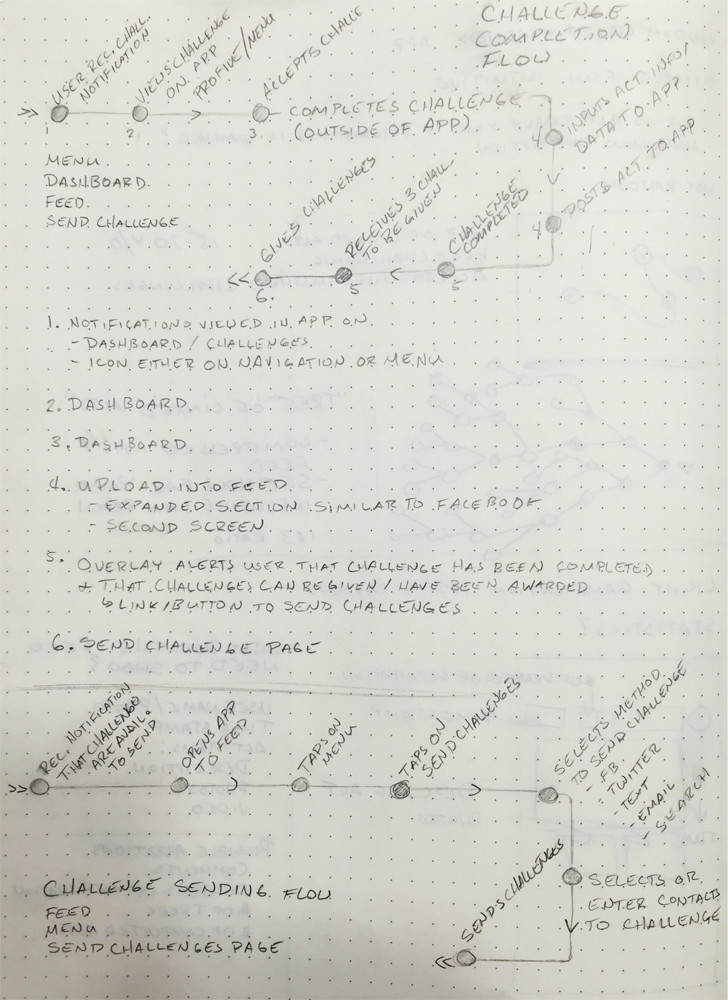 CHALLENGE
COMPLETION
FLOW
USER REC. CHALL.
NOTIFICATION
VIEWS CHALLENGE
ON APP
PROFIVE/MENU
ACCEPTS CHALLE
COMPLETES CHALLENGE
(OUTSIDE OF APP)
INPUTS ACT. INFO/
DATA TO APP
1
2
3
4
MENU
DASHBOARD.
FEED
SEND CHALLENGE
POSTS ACT TO APP
4
CHALLENGE
COMPLETED
5
RECEIVES 3 CHALL.
TO BE GIVEN
5
GIVES CHALLENGES
6.
1. NOTIFICATIONS VIEWED IN APP ON
- DASHBOARD / CHALLENGES.
- ICON EITHER ON NAVIGATION OR MENU
2. DASHBOARD.
3. DASHBOARD
4. UPLOAD INTO FEED
- EXPANDED SECTION SIMILAR TO FACEBOOK
- SECOND SCREEN
5. OVERLAY ALERTS USER THAT CHALLENGE HAS BEEN COMPLETED
+ THAT CHALLENGES CAN BE GIVEN / HAVE BEEN AWARDED
↳ LINK/BUTTON TO SEND CHALLENGES
6. SEND CHALLENGE PAGE
REC. NOTIFICATION
THAT CHALLENGE
ARE AVAIL.
TO SEND
OPENS APP
TO FEED
TAPS ON
MENU
TAPS ON
SEND CHALLENGES
SELECTS METHOD
TO SEND CHALLENGE
- FB
- TWITTER
- TEXT
- EMAIL
- SEARCH
SELECTS OR
ENTER CONTACTS
TO CHALLENGE
SENDS CHALLENGES
CHALLENGE SENDING FLOW
FEED
MENU
SEND CHALLENGES PAGE